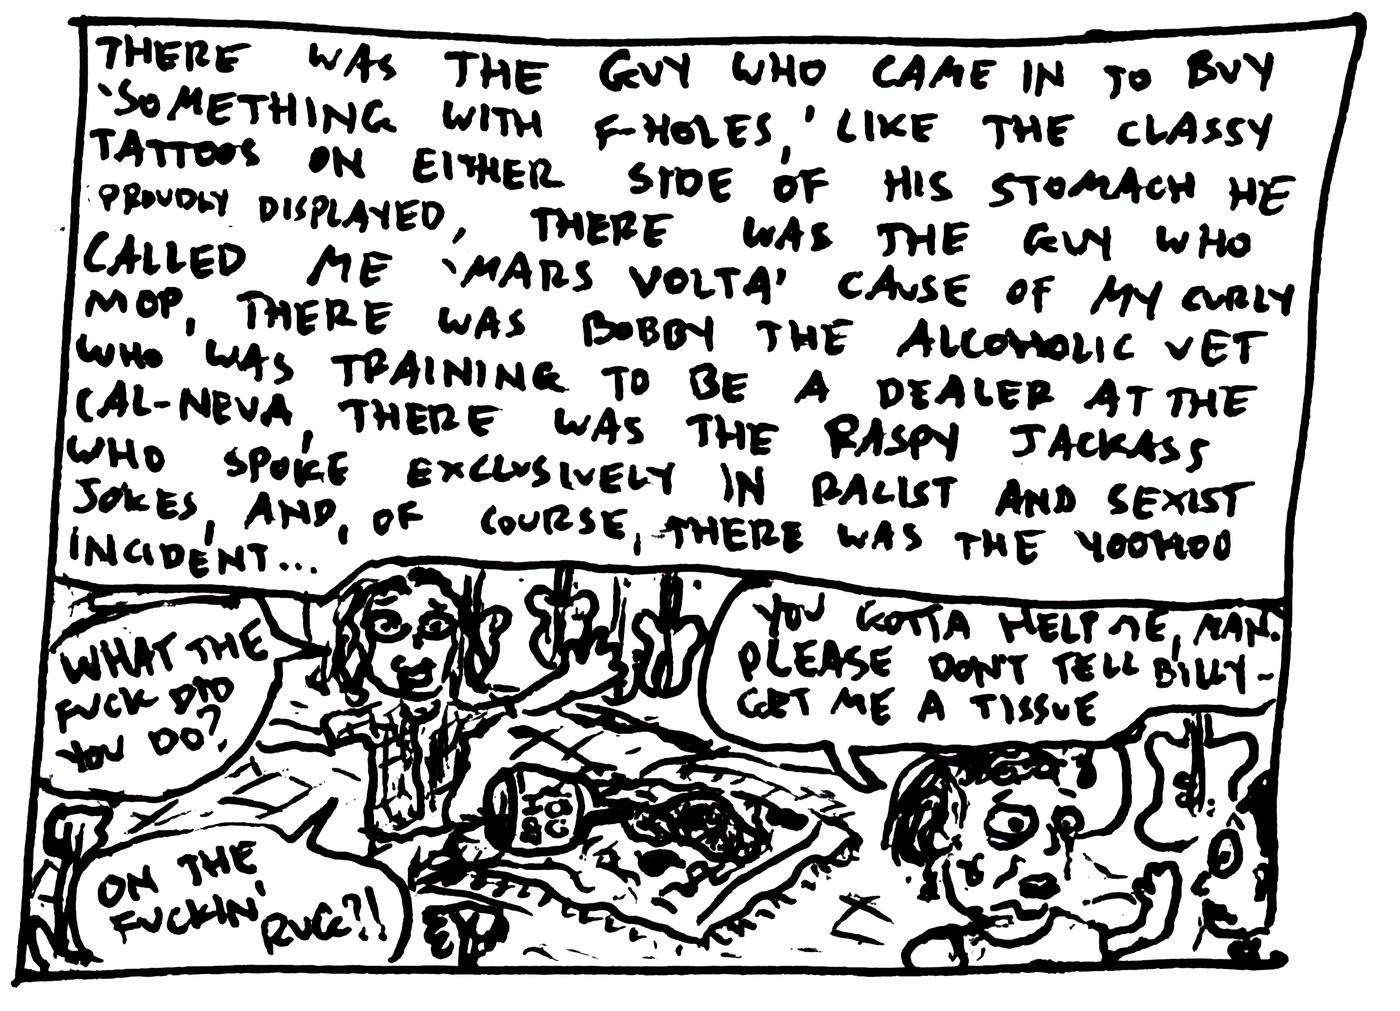 THERE WAS THE GUY WHO CAME IN TO BUY
'SOMETHING WITH F-HOLES,' LIKE THE CLASSY
TATTOOS ON EITHER SIDE OF HIS STOMACH HE
PROUDLY DISPLAYED, THERE WAS THE GUY WHO
CALLED ME 'MARS VOLTA' CAUSE OF MY CURLY
MOP, THERE WAS BOBBY THE ALCOHOLIC VET
WHO WAS TRAINING TO BE A DEALER AT THE
CAL-NEVA, THERE WAS THE RASPY JACKASS
WHO SPOKE EXCLUSIVELY IN RACIST AND SEXIST
JOKES, AND, OF COURSE, THERE WAS THE YOOHOO
INCIDENT...
WHAT THE
FUCK DID
YOU DO?
YOU GOTTA HELP ME, MAN.
PLEASE DON'T TELL BILLY-
GET ME A TISSUE
ON THE
FUCKIN'
RUG?!